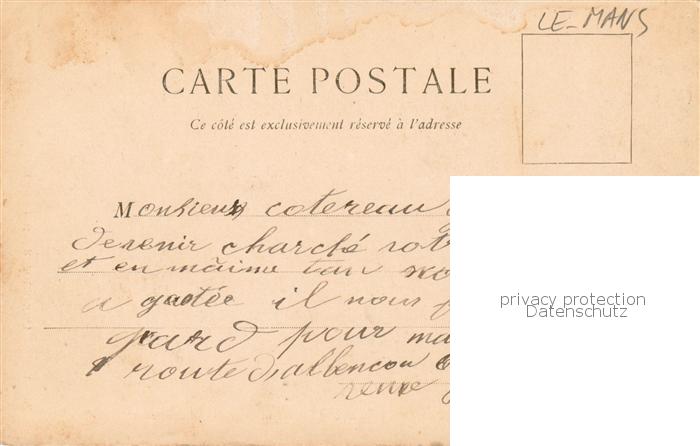 LE-MANS
CARTE POSTALE
Ce côté est exclusivement réservé à l'adresse
Monsieur cotereau
de venir charché votr
et en māime tan
a gaetée il nous
grand pour ma
route d'allencon
privacy protection
Datenschutz